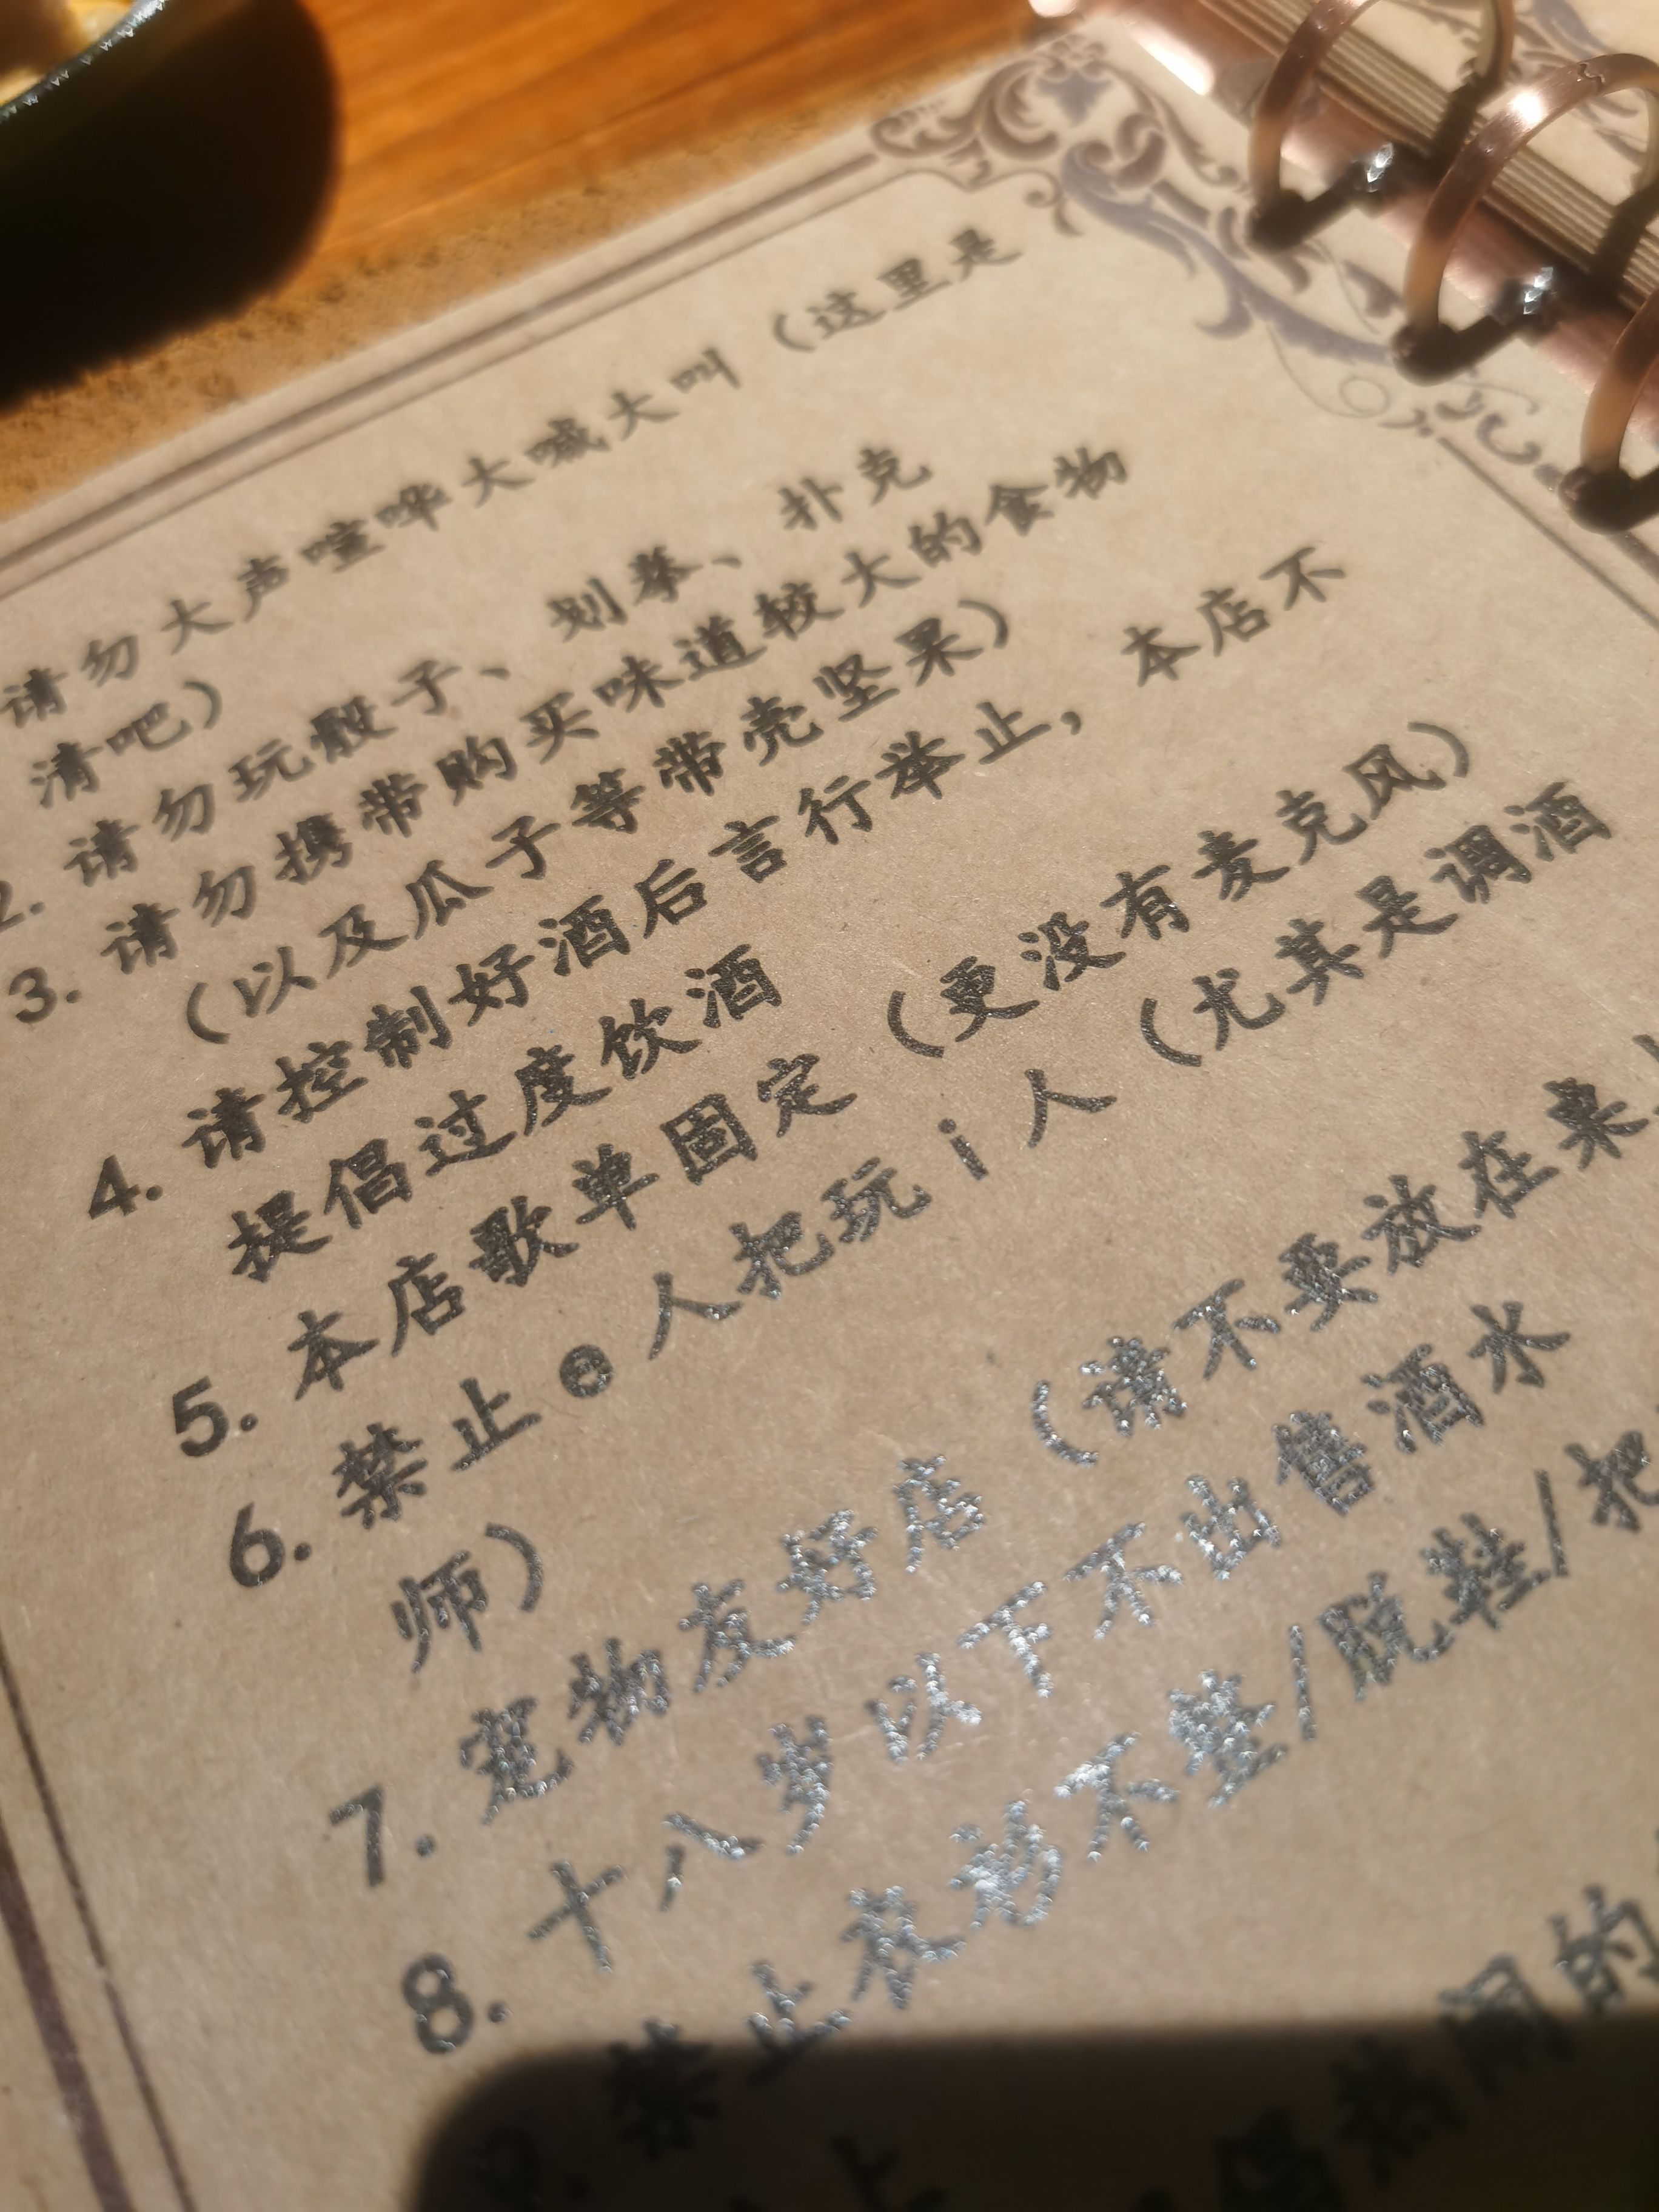 请勿大声喧哗大喊大叫（这里是
清吧）
2. 请勿玩骰子、划拳、扑克
3. 请勿携带购买味道较大的食物
（以及瓜子等带壳坚果）
4. 请控制好酒后言行举止，本店不
提倡过度饮酒
5. 本店歌单固定（更没有麦克风）
6. 禁止e人把玩i人（尤其是调酒
师）
7. 宠物友好店（请不要放在桌
8. 十八岁以下不出售酒水
9. 禁止衣衫不整/脱鞋/把
上
的